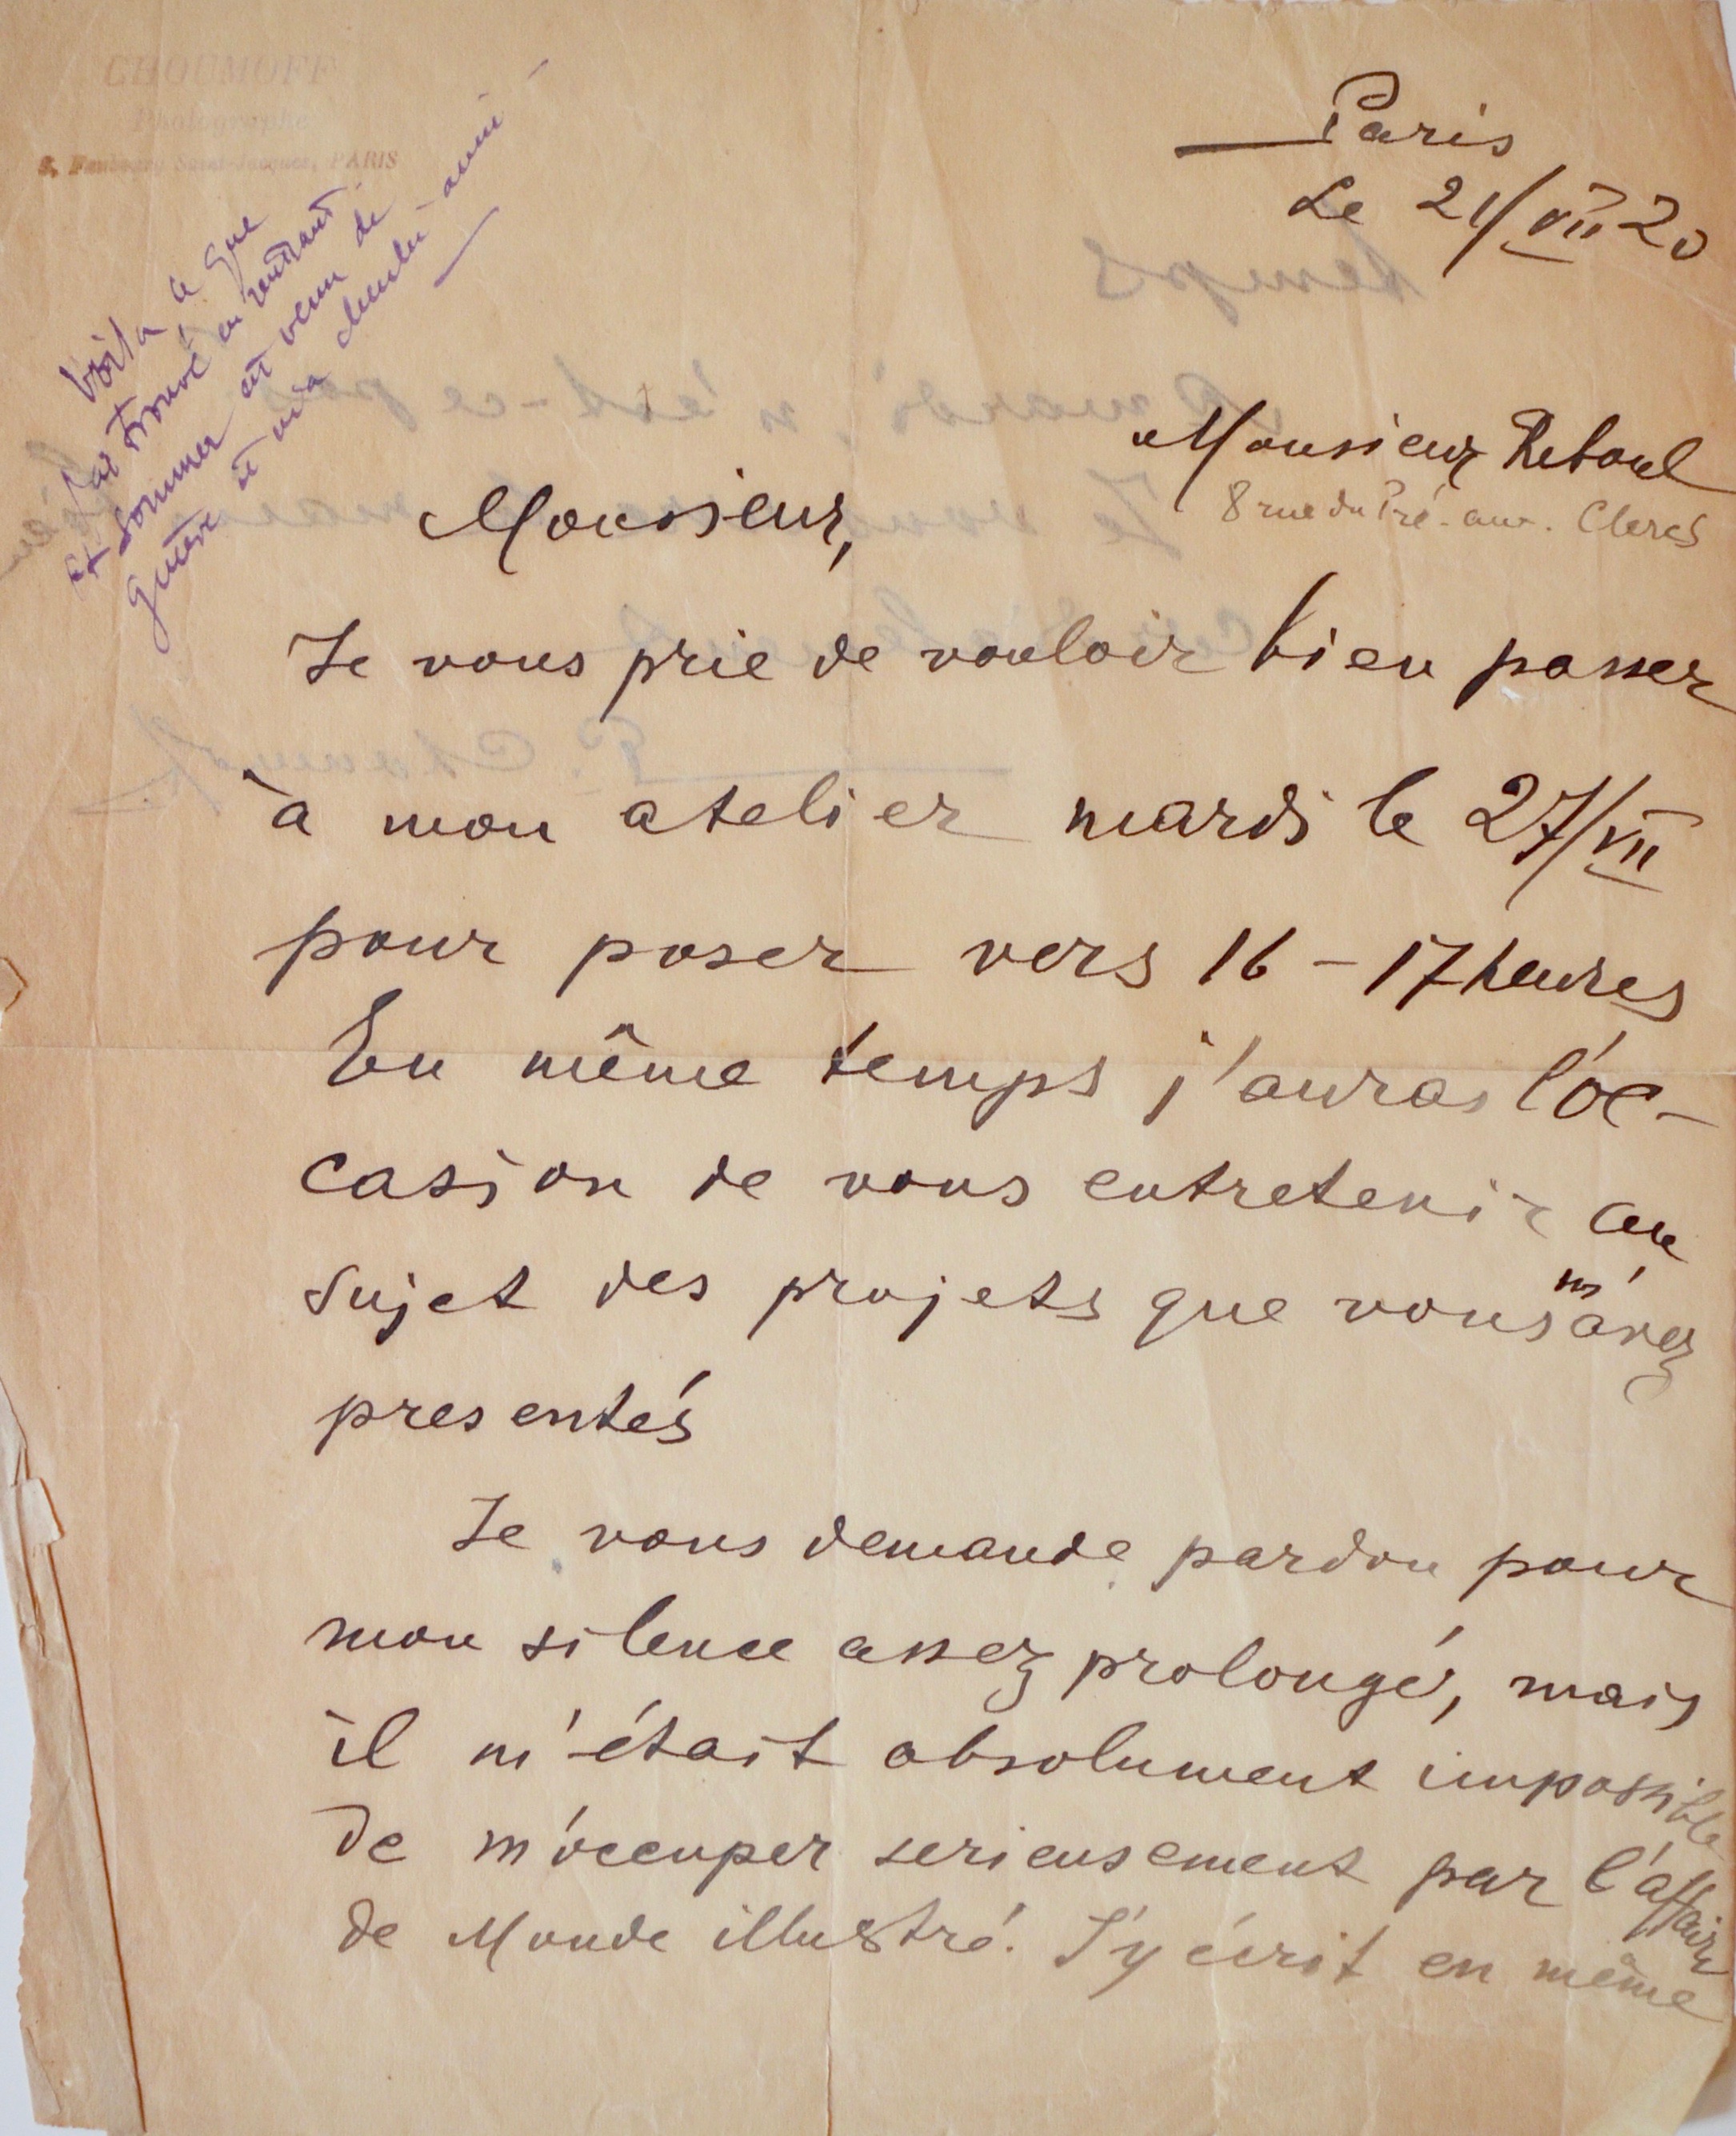 CHOUMOFF
Photographe
Faubourg Saint-Jacques, PARIS
Voilà ce que
j'ai trouvé en rentrant.
et venu de
Paris
Le 21/VII 20
Monsieur Reboul
8 rue du Pré-aux-Clercs
Monsieur,
Je vous prie de vouloir bien passer
à mon atelier mardi le 27/VII
pour poser vers 16 – 17 heures
En même temps j'auras l'oc-
casion de vous entretenir au
sujet des projets que vous m'avez
presentés
Je vous demande pardon pour
mon silence assez prolongé, mais
il m'était absolument impossible
de m'occuper serieusement par l'affaire
de Monde illustré. J'y écrit en même
temps
A mardi, n'est-ce pas
Je vous
P. Choumoff